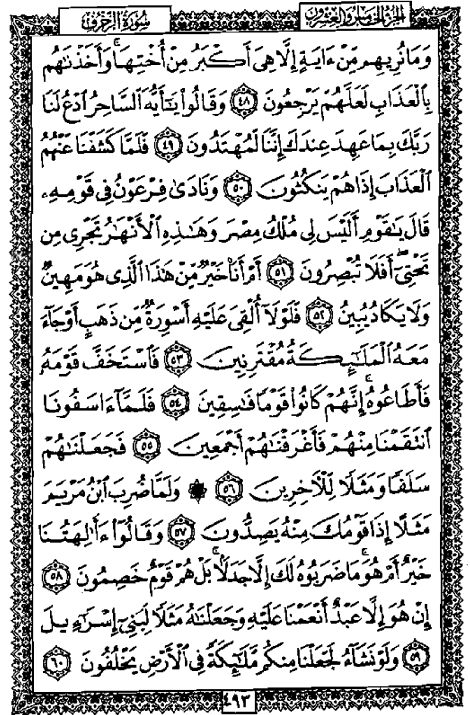 الجزء الخامس والعشرون
سورة الزخرف
وَمَا نُرِيهِم مِّنْ ءَايَةٍ إِلَّا هِىَ أَكْبَرُ مِنْ أُخْتِهَا ۖ وَأَخَذْنَٰهُم
بِالْعَذَابِ لَعَلَّهُمْ يَرْجِعُونَ ٤٨ وَقَالُوا۟ يَٰٓأَيُّهَ السَّاحِرُ ادْعُ لَنَا
رَبَّكَ بِمَا عَهِدَ عِندَكَ إِنَّنَا لَمُهْتَدُونَ ٤٩ فَلَمَّا كَشَفْنَا عَنْهُمُ
الْعَذَابَ إِذَا هُمْ يَنكُثُونَ ٥٠ وَنَادَىٰ فِرْعَوْنُ فِى قَوْمِهِۦ
قَالَ يَٰقَوْمِ أَلَيْسَ لِى مُلْكُ مِصْرَ وَهَٰذِهِ الْأَنْهَٰرُ تَجْرِى مِن
تَحْتِىٓ ۖ أَفَلَا تُبْصِرُونَ ٥١ أَمْ أَنَا۠ خَيْرٌ مِّنْ هَٰذَا الَّذِى هُوَ مَهِينٌ
وَلَا يَكَادُ يُبِينُ ٥٢ فَلَوْلَآ أُلْقِىَ عَلَيْهِ أَسْوِرَةٌ مِّن ذَهَبٍ أَوْ جَآءَ
مَعَهُ الْمَلَٰٓئِكَةُ مُقْتَرِنِينَ ٥٣ فَاسْتَخَفَّ قَوْمَهُۥ
فَأَطَاعُوهُ ۚ إِنَّهُمْ كَانُوا۟ قَوْمًا فَٰسِقِينَ ٥٤ فَلَمَّآ ءَاسَفُونَا
انتَقَمْنَا مِنْهُمْ فَأَغْرَقْنَٰهُمْ أَجْمَعِينَ ٥٥ فَجَعَلْنَٰهُمْ
سَلَفًا وَمَثَلًا لِّلْءَاخِرِينَ ٥٦ ۞ وَلَمَّا ضُرِبَ ابْنُ مَرْيَمَ
مَثَلًا إِذَا قَوْمُكَ مِنْهُ يَصِدُّونَ ٥٧ وَقَالُوٓا۟ ءَأَٰلِهَتُنَا
خَيْرٌ أَمْ هُوَ ۚ مَا ضَرَبُوهُ لَكَ إِلَّا جَدَلًۢا ۚ بَلْ هُمْ قَوْمٌ خَصِمُونَ ٥٨
إِنْ هُوَ إِلَّا عَبْدٌ أَنْعَمْنَا عَلَيْهِ وَجَعَلْنَٰهُ مَثَلًا لِّبَنِىٓ إِسْرَٰٓءِيلَ
٥٩ وَلَوْ نَشَآءُ لَجَعَلْنَا مِنكُم مَّلَٰٓئِكَةً فِى الْأَرْضِ يَخْلُفُونَ ٦٠
٤٩٣